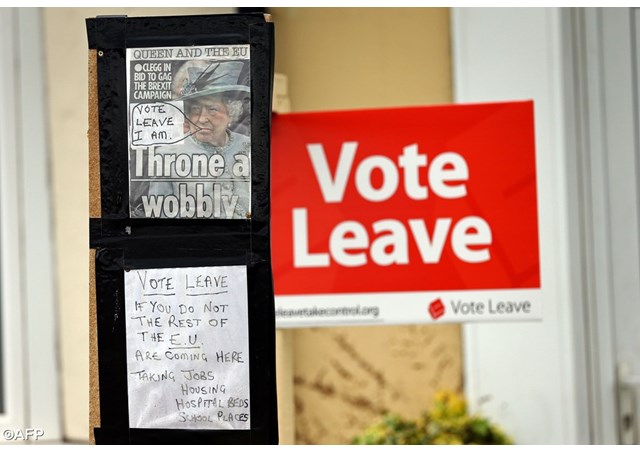 QUEEN AND THE EU
CLEGG IN
BID TO GAG
THE BREXIT
CAMPAIGN
VOTE
LEAVE
I AM.
Throne a
wobbly
VOTE LEAVE
IF YOU DO NOT
THE REST OF
THE E.U.
ARE COMING HERE
TAKING JOBS
HOUSING
HOSPITAL BEDS
SCHOOL PLACES
Vote
Leave
eleavetakecontrol.org
Vote Leave
©AFP